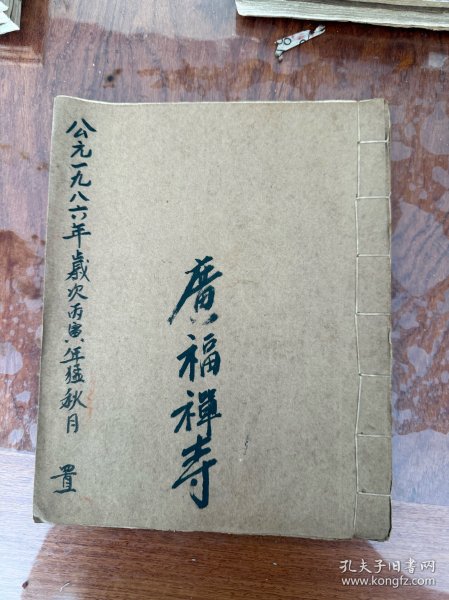 廣福禪寺
公元一九八六年歲次丙寅年猛秋月 置
孔夫子旧书网
www.kongfz.com